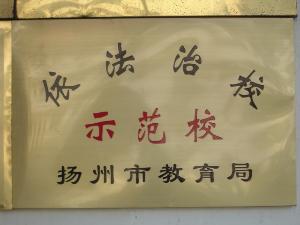 依法治校
示范校
扬州市教育局